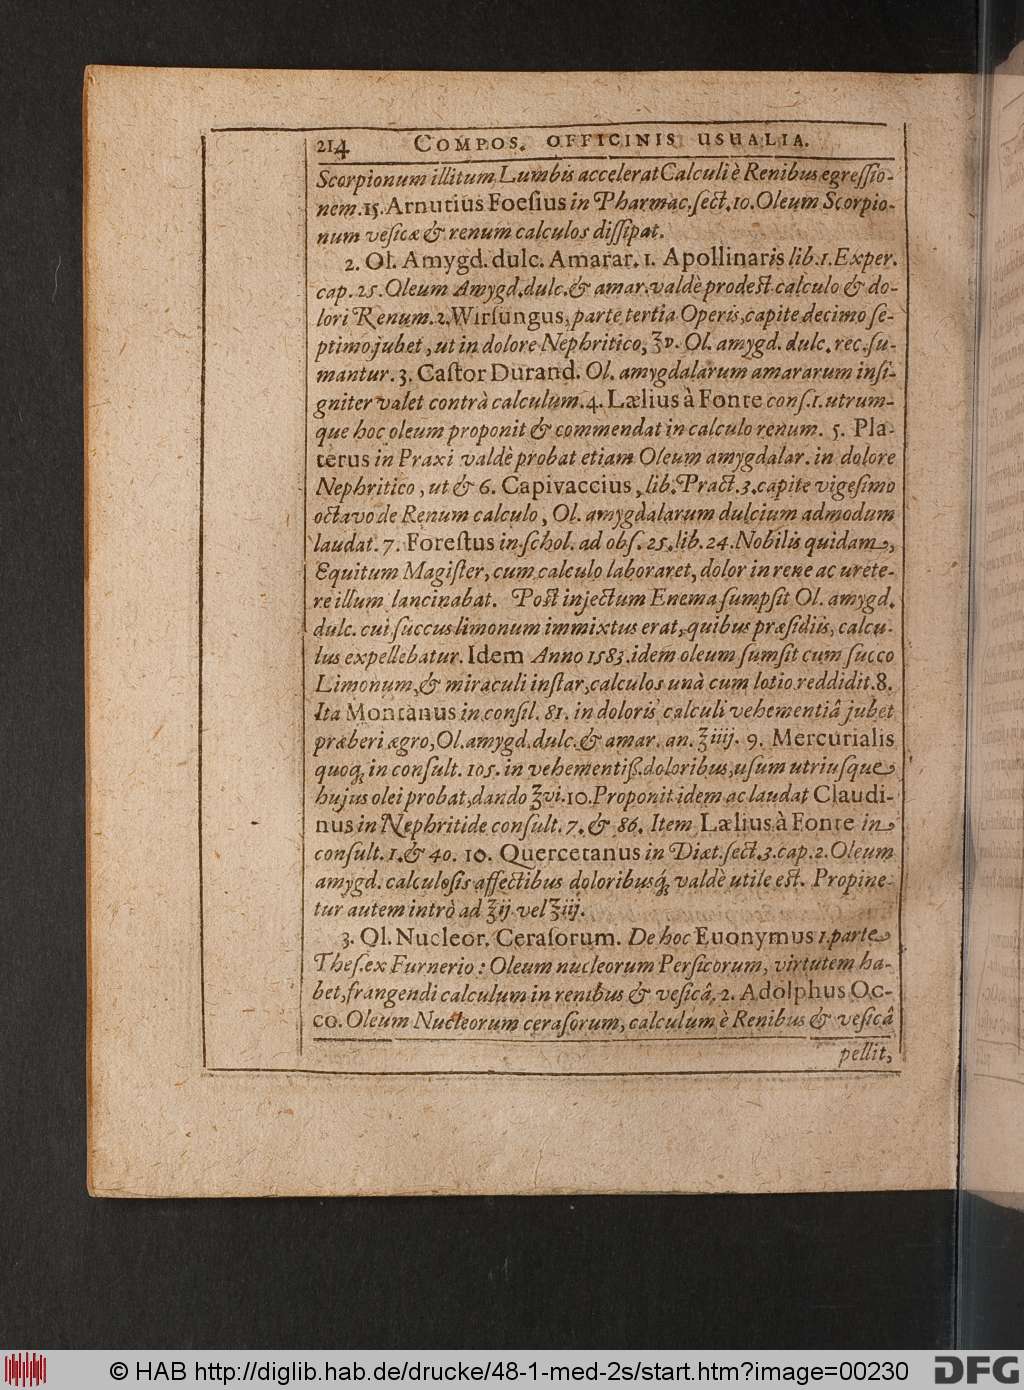 214 COMPOS. OFFICINIS USUALIA.
Scorpionum illitum Lumbis accelerat Calculi è Renibus egreſſio-
nem. 15. Arnutius Foeſius in Pharmac. ſect. 10. Oleum Scorpio-
num veſicæ & renum calculos diſſipat.
2. Ol. Amygd. dulc. Amarar. 1. Apollinaris lib. 1. Exper.
cap. 25. Oleum Amygd. dulc. & amar. valdè prodest calculo & do-
lori Renum. 2. Wirſungus, parte tertia Operis, capite decimo ſe-
ptimo jubet, ut in dolore Nephritico, ʒv. Ol. amygd. dulc. rec. ſu-
mantur. 3. Caſtor Durand. Ol. amygdalarum amararum inſi-
gniter valet contrà calculum. 4. Lælius à Fonte conſ. 1. utrum-
que hoc oleum proponit & commendat in calculo renum. 5. Pla-
terus in Praxi valdè probat etiam Oleum amygdalar. in dolore
Nephritico, ut & 6. Capivaccius, lib. Pract. 3. capite vigeſimo
octavo de Renum calculo, Ol. amygdalarum dulcium admodum
laudat. 7. Foreſtus in ſchol. ad obſ. 25. lib. 24. Nobilis quidam,
Equitum Magiſter, cum calculo laboraret, dolor in rene ac urete-
re illum lancinabat. Post injectum Enema ſumpſit Ol. amygd.
dulc. cui ſuccus limonum immixtus erat, quibus præſidiis, calcu-
lus expellebatur. Idem Anno 1583. idem oleum ſumſit cum ſucco
Limonum, & miraculi inſtar, calculos unà cum lotio reddidit. 8.
Ita Montanus in conſil. 81. in doloris calculi vehementiâ jubet
præberi ægro, Ol. amygd. dulc. & amar. an. ʒiiij. 9. Mercurialis
quoq; in conſult. 105. in vehementiß. doloribus, uſum utriuſque
hujus olei probat, dando ʒvi. 10. Proponit idem ac laudat Claudi-
nus in Nephritide conſult. 7. & 86. Item Lælius à Fonte in
conſult. 1. & 40. 10. Quercetanus in Diæt. ſect. 3. cap. 2. Oleum
amygd. calculoſis affectibus doloribusq; valdè utile est. Propine-
tur autem intrò ad ʒij vel ʒiij.
3. Ol. Nucleor. Ceraſorum. De hoc Euonymus 1. parte
Theſ. ex Furnerio: Oleum nucleorum Perſicorum, virtutem ha-
bet, frangendi calculum in renibus & veſicâ, 2. Adolphus Oc-
co. Oleum Nucleorum ceraſorum, calculum è Renibus & veſicâ
pellit,
© HAB http://diglib.hab.de/drucke/48-1-med-2s/start.htm?image=00230
DFG